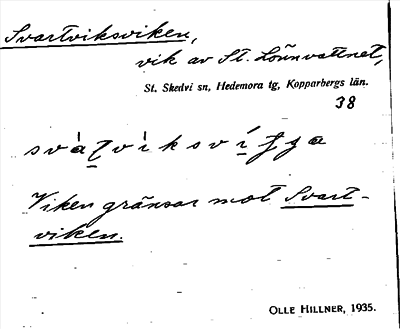 Svartviksviken,
vik av St. Lönnvattnet,
St. Skedvi sn, Hedemora tg, Kopparbergs län.
38
Viken gränsar mot Svart-
viken.
OLLE HILLNER, 1935.